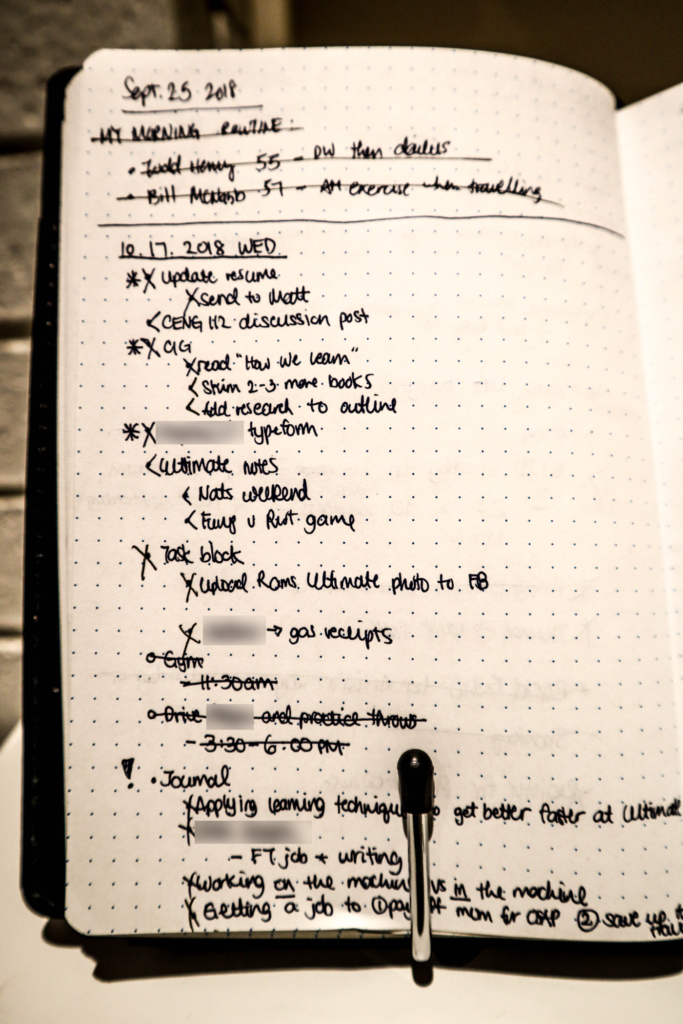 Sept. 25 2018
MY MORNING ROUTINE:
• Todd Henry 55 - DW then
• Bill McNabb 57 - AM exercise when travelling
10.17.2018 WED
*X update resume
X send to Matt
<CENG 112 discussion post
*X CIG
X read "How We Learn"
< Skim 2-3 more books
< Add research to outline
*X typeform
<Ultimate notes
< Nats weekend
< Fung v Riot game
X Task block
X upload Rams Ultimate photo to FB
X → gas receipts
o Gym
- 11:30am
o Drive and practice throws
- 3:30-6:00 PM
! • Journal
X Applying learning to get better faster at Ultimate
X
- FT job + writing
X Working on the vs in the machine
X Getting a job to ① mom for ② save up